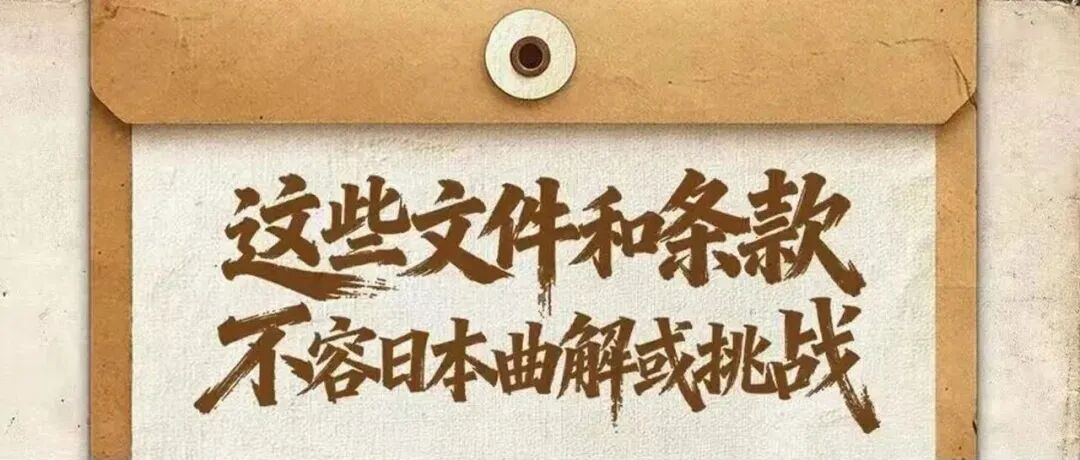 这些文件和条款
不容日本曲解或挑战